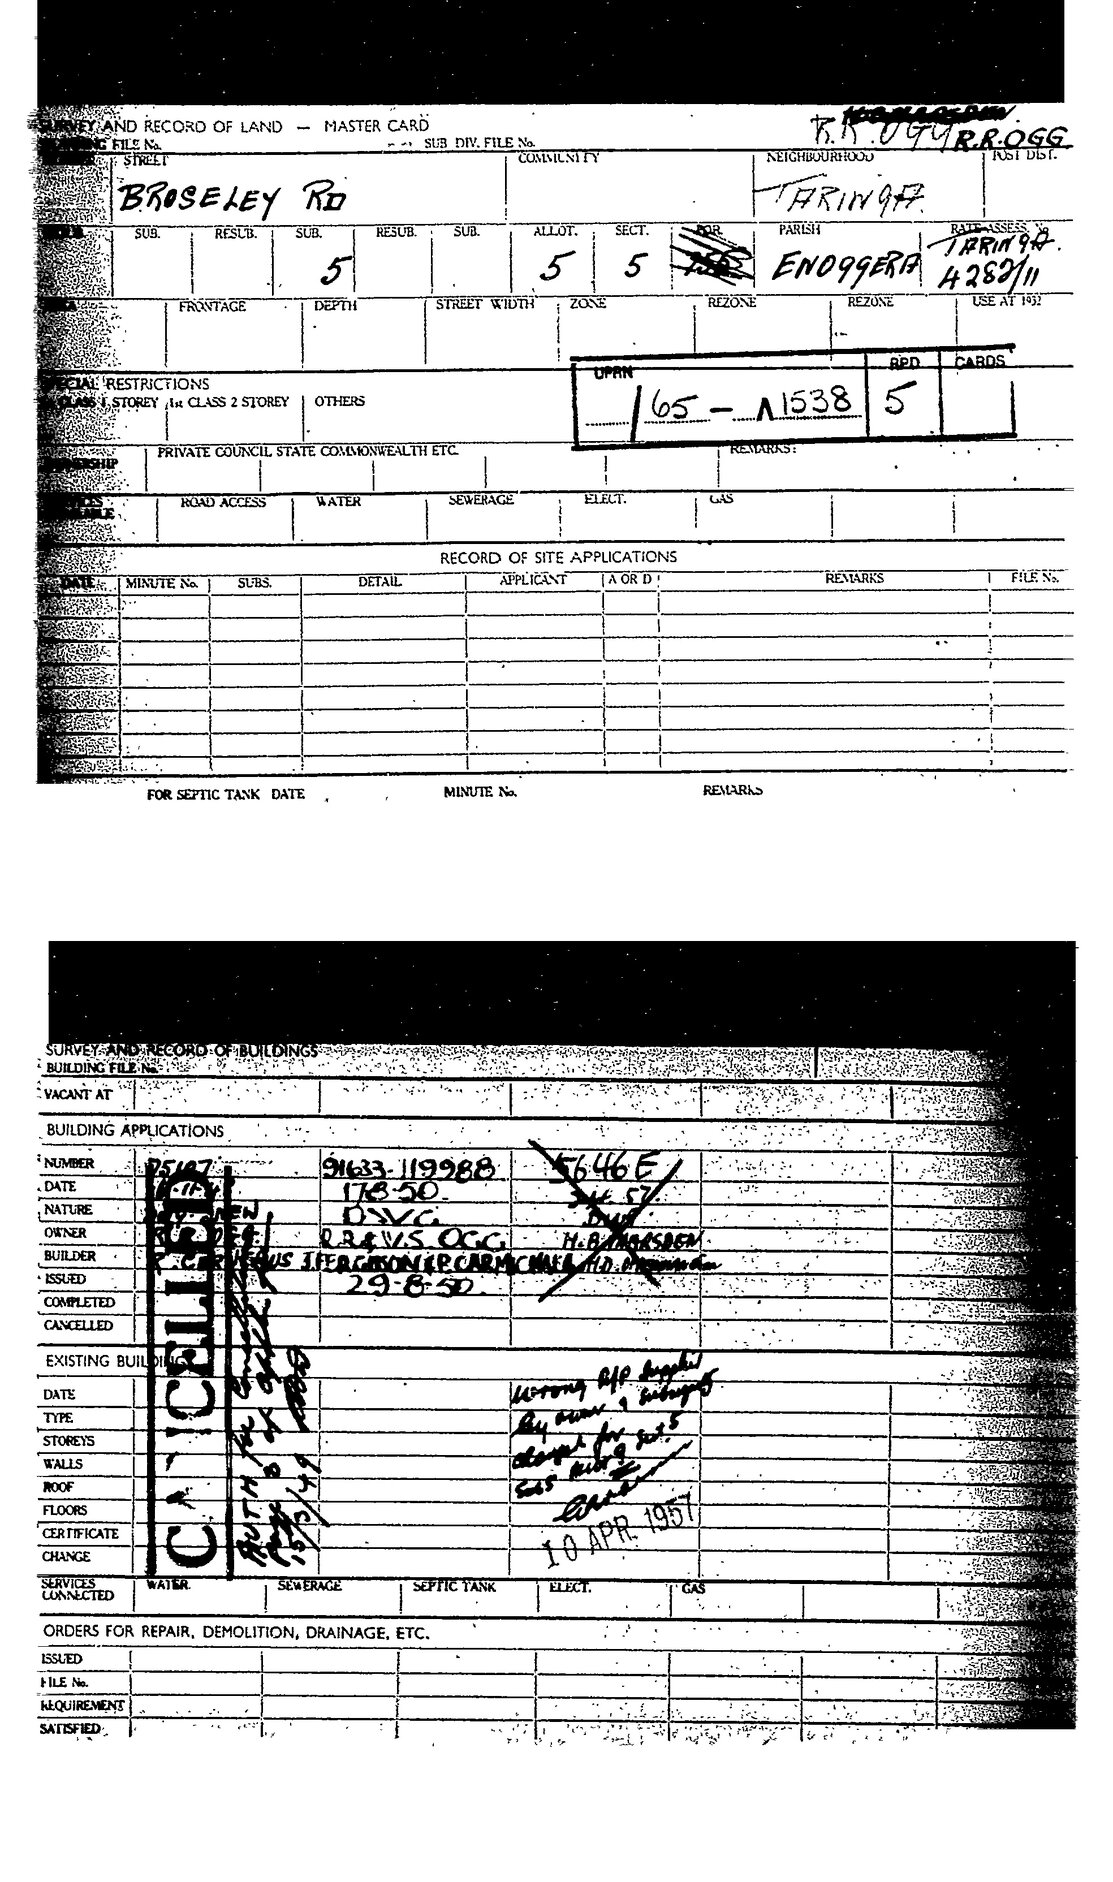 SURVEY AND RECORD OF LAND — MASTER CARD
R.R. OGG R.R.OGG
FILE No. SUB DIV. FILE No.
STREET COMMUNITY NEIGHBOURHOOD POST DIST.
BROSELEY RD TARINGA
SUB. RESUB. SUB. RESUB. SUB. ALLOT. SECT. POR. PARISH RATE ASSESS. No
5 5 5 ENOGGERA TARINGA. 4282/11
FRONTAGE DEPTH STREET WIDTH ZONE REZONE REZONE USE AT 1952
UPRN RPD CARDS
/65 - A1538 5
SPECIAL RESTRICTIONS
CLASS 1 STOREY 1st CLASS 2 STOREY OTHERS
OWNERSHIP PRIVATE COUNCIL STATE COMMONWEALTH ETC. REMARKS:
SERVICES AVAILABLE ROAD ACCESS WATER SEWERAGE ELECT. GAS
RECORD OF SITE APPLICATIONS
DATE MINUTE No. SUBS. DETAIL APPLICANT A OR D REMARKS FILE No.
FOR SEPTIC TANK DATE MINUTE No. REMARKS
SURVEY AND RECORD OF BUILDINGS
BUILDING FILE No.
VACANT AT
BUILDING APPLICATIONS
NUMBER 91633-119988 5646E
DATE 17.8.50 57.
NATURE NEW DWG
OWNER R.R. & V.S. OGG. H.B. MARSDEN
BUILDER J.FERGUSON & P. CARMICHAEL
ISSUED 29-8-50.
COMPLETED
CANCELLED
CANCELLED
AUTH for
Page 8 of
15/3/49
EXISTING BUILDINGS
wrong R/P supplied
by owner & subsequently
changed for
Sub5 Allot 9 Sect.5
10 APR. 1957
DATE
TYPE
STOREYS
WALLS
ROOF
FLOORS
CERTIFICATE
CHANGE
SERVICES CONNECTED WATER. SEWERAGE SEPTIC TANK ELECT. GAS
ORDERS FOR REPAIR, DEMOLITION, DRAINAGE, ETC.
ISSUED
FILE No.
REQUIREMENT
SATISFIED